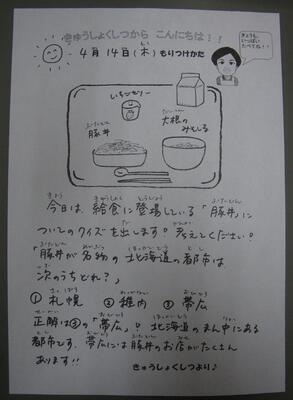 きゅうしょくしつから こんにちは!!
4月14日(木)もりつけかた
きょうも、
いっぱい
たべてね!!
いちごゼリー
豚丼
大根の
みそしる
今日は、給食に登場している「豚丼」に
ついてのクイズを出します。考えてください。
「豚丼が名物の北海道の都市は
次のうちどれ?」
①札幌 ②稚内 ③帯広
正解は③の「帯広」。北海道のまん中にある
都市です。帯広には豚丼のお店がたくさん
あります!!
きゅうしょくしつより♪